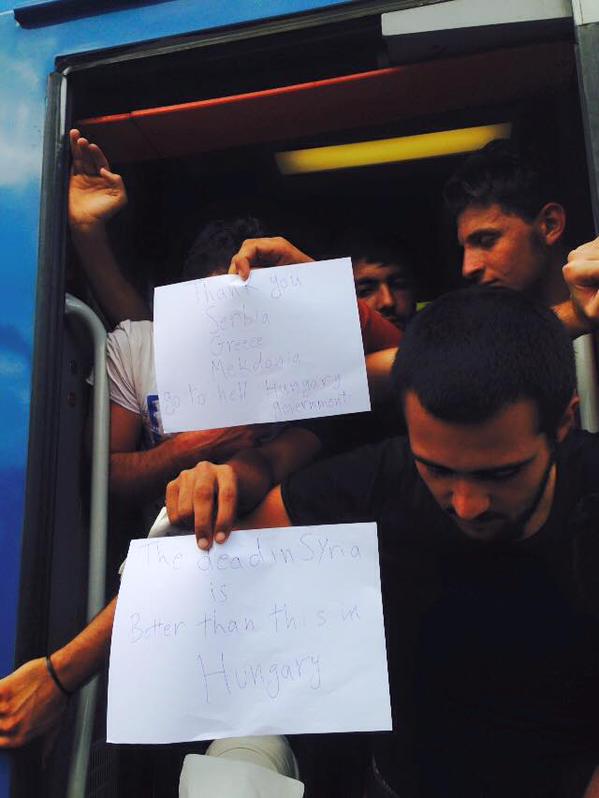 Thank you
Serbia
Greece
Mekdonia
go to hell Hungary
government
The dead in Syria
is
Better than this in
Hungary